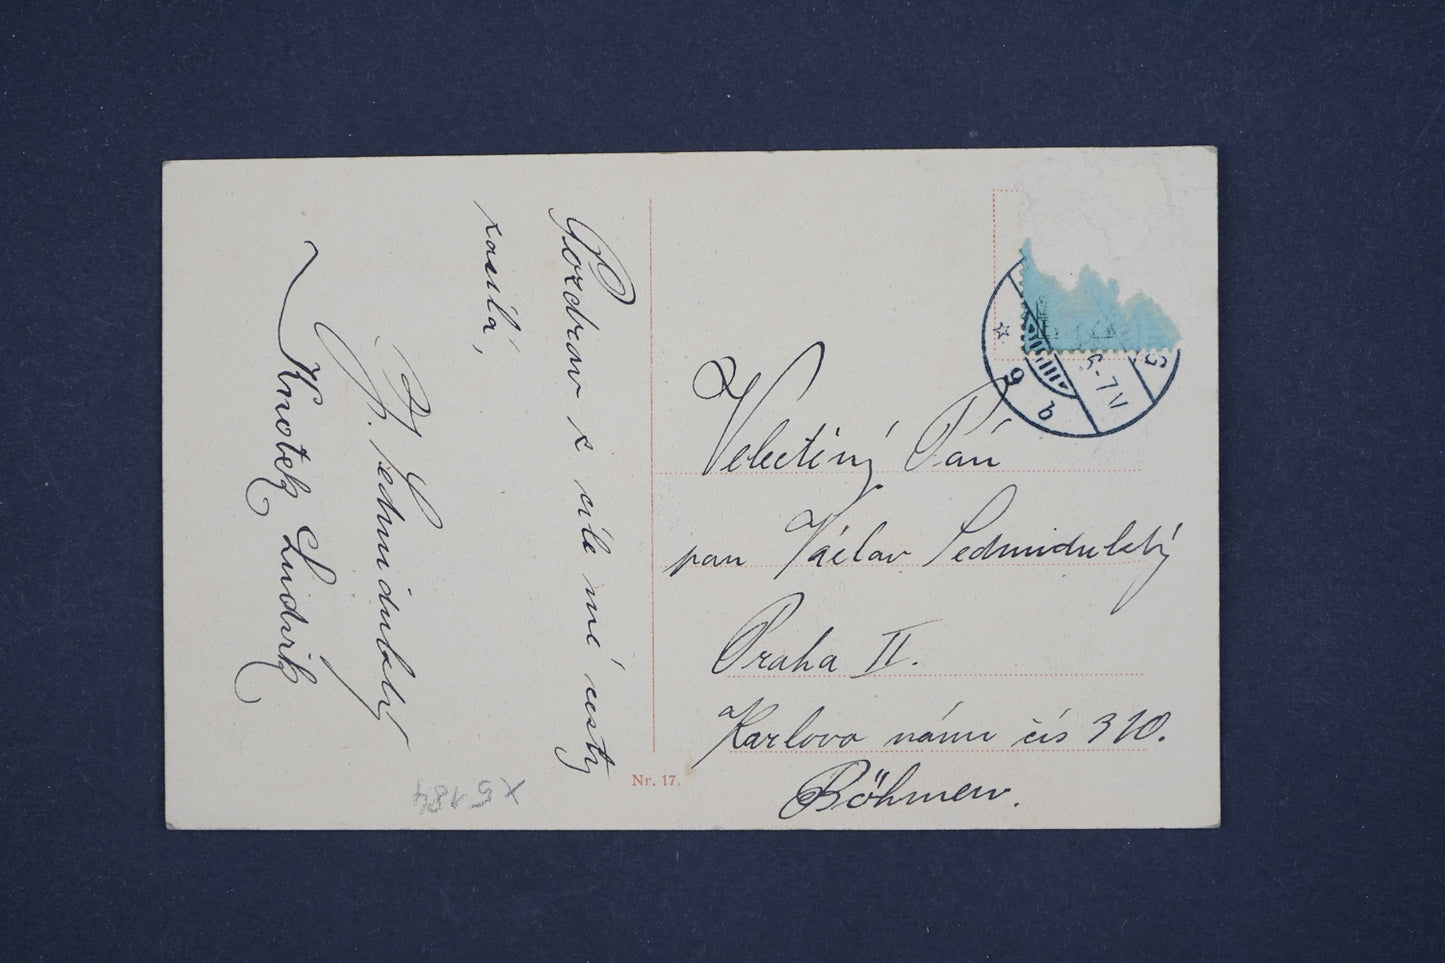 Pozdrav z cíle mé cesty
zasílá,
J. Sedmidubský
Knotek Ludvík
Velectěný Pán
pan Václav Sedmidubský
Praha II.
Karlovo nám čís 310.
Böhmen.
Nr. 17.
X5184